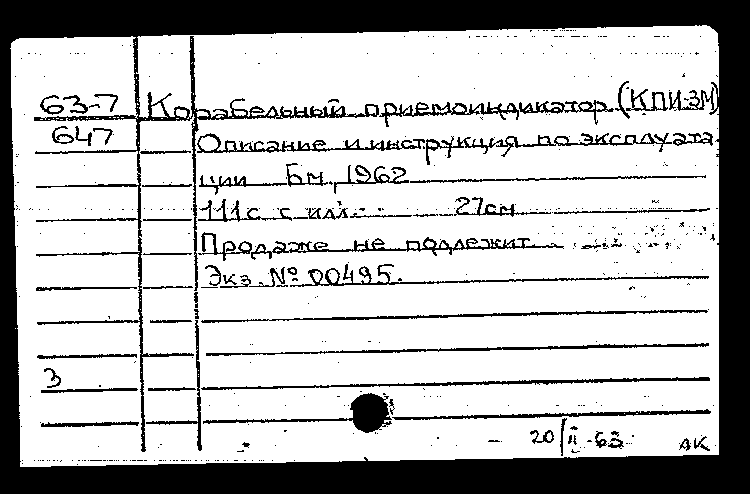 63-7 Корабельный приемоиндикатор (КПИ-3М)
647 Описание и инструкция по эксплуата-
ции Бм, 1962
111с. с илл. 27см
Продаже не подлежит
Экз. № 00495.
3
20/II-63 АК